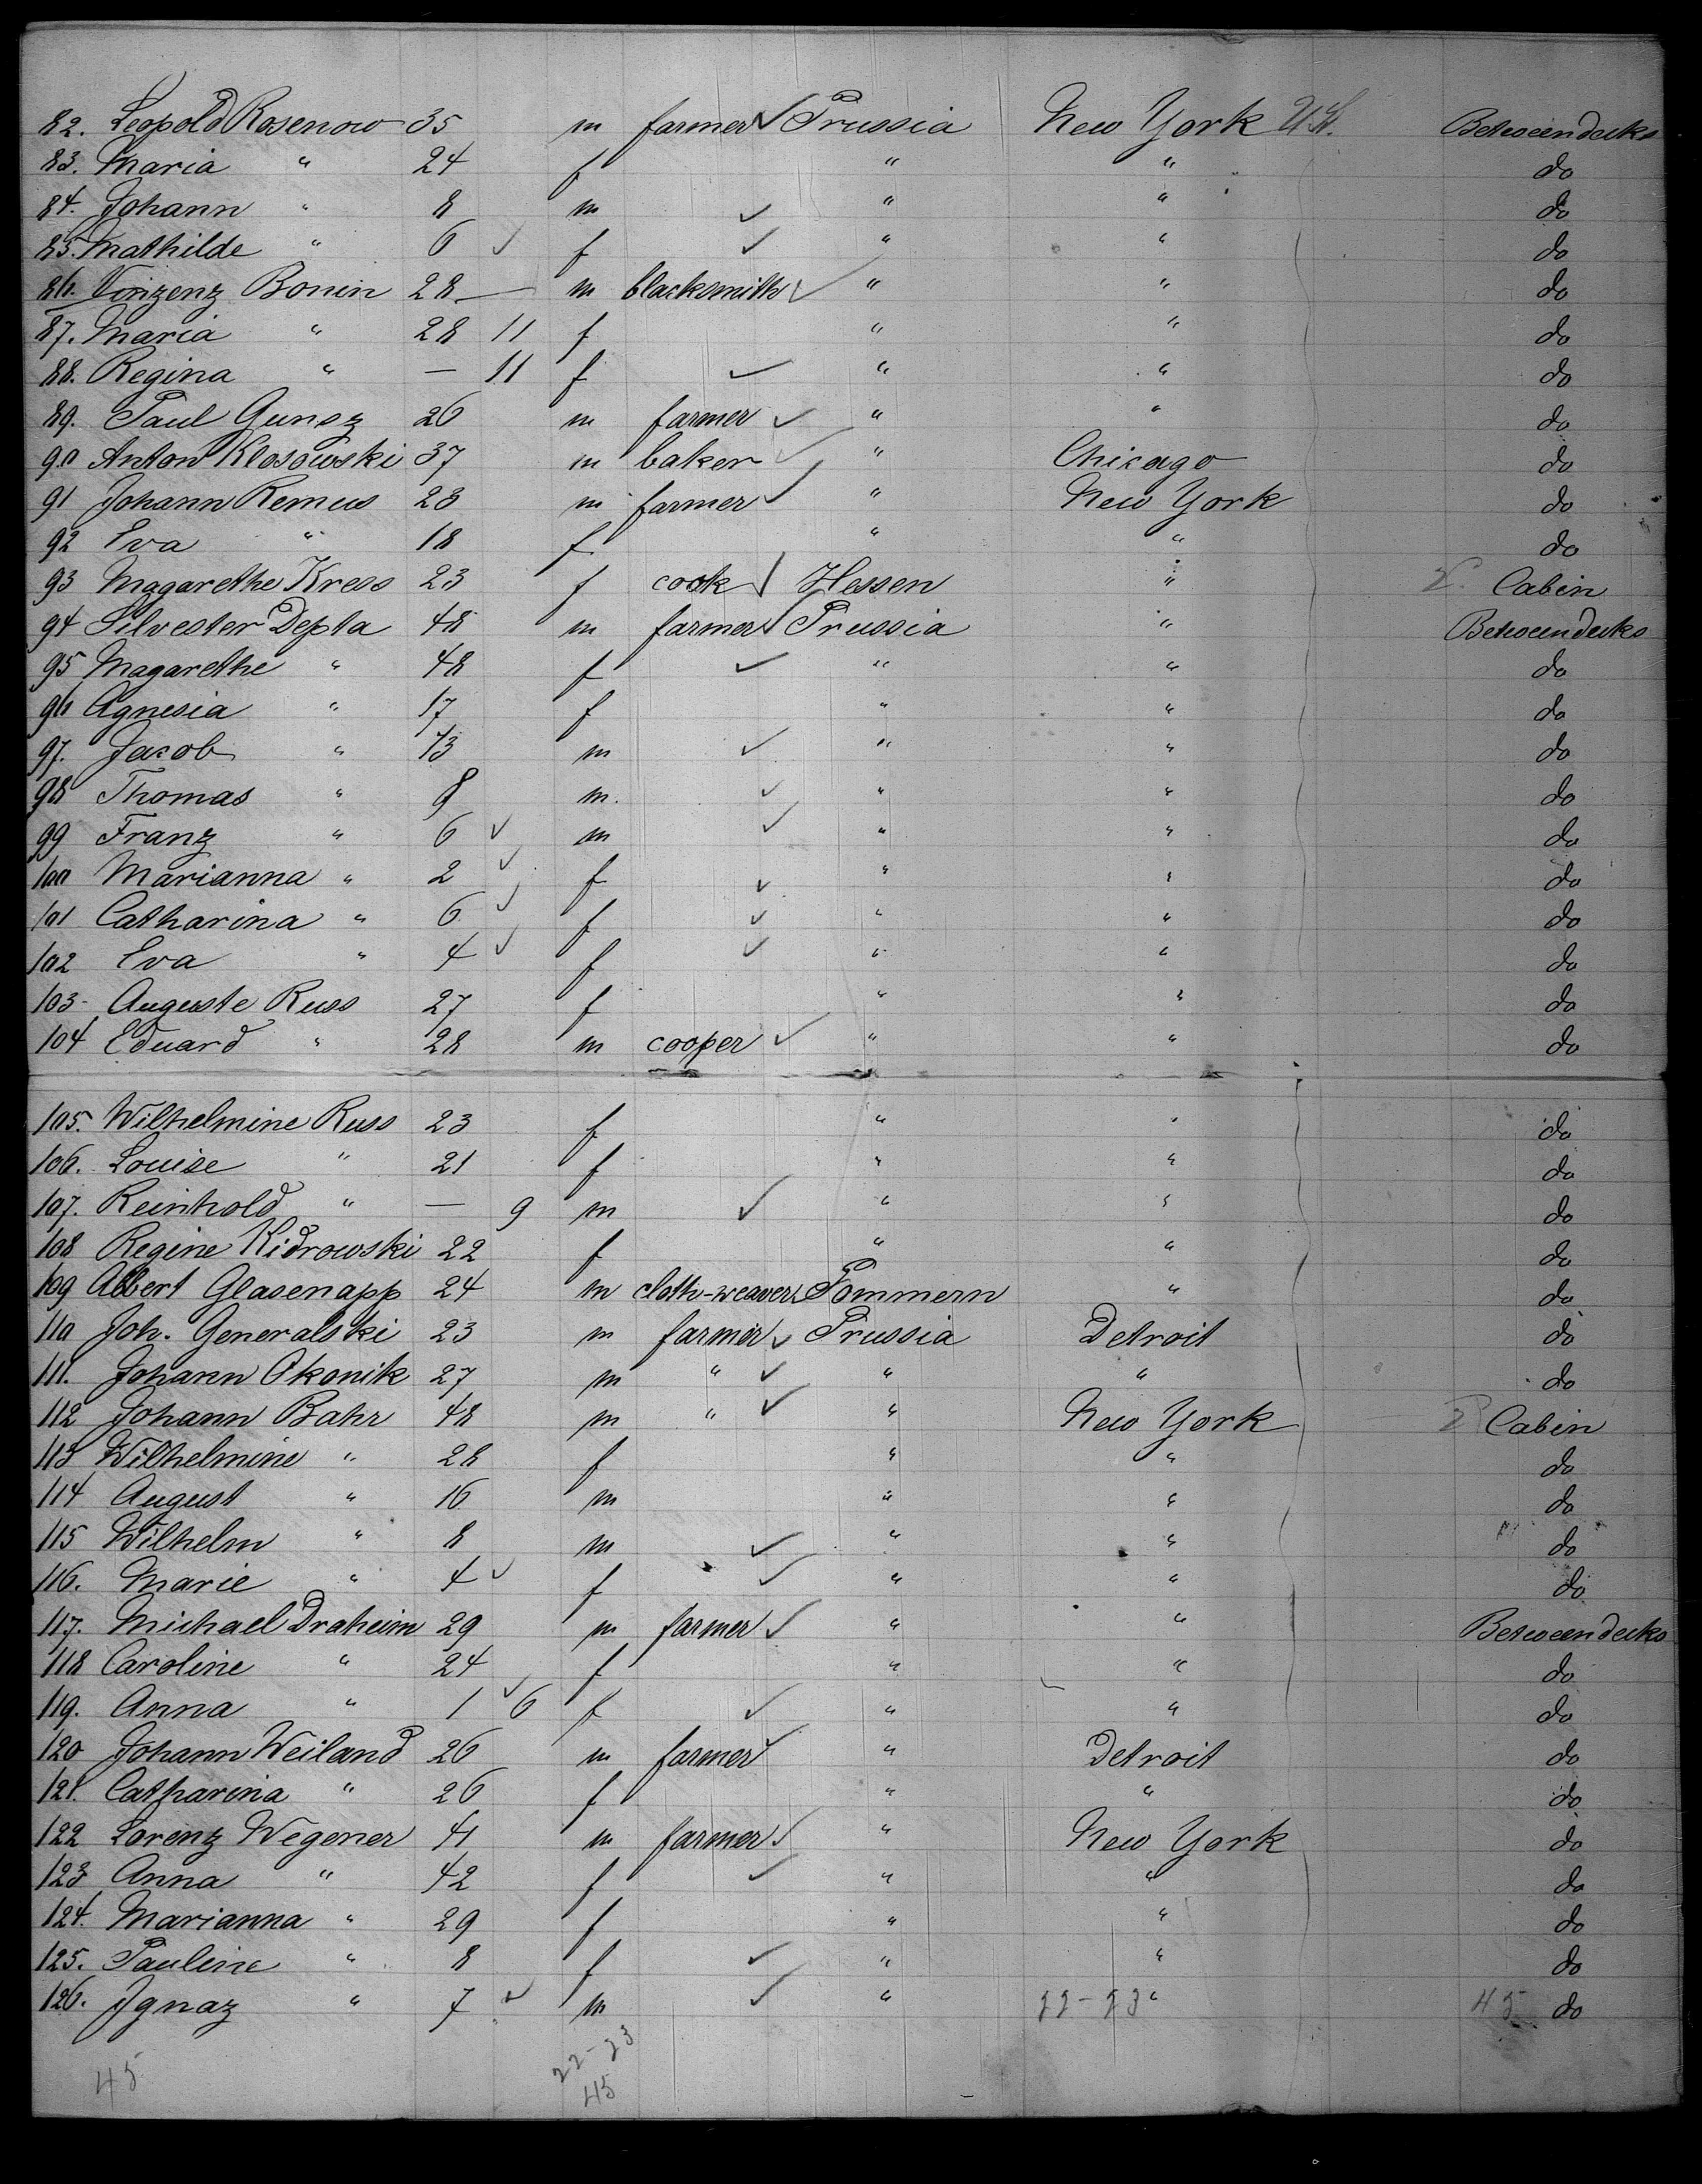 82. Leopold Rosenow 35 m farmer ✓ Prussia New York U.S. Betweendecks
83. Maria " 24 f " " do
84. Johann " 8 m ✓ " " do
85. Mathilde " 6 ✓ f ✓ " " do
86. Vinzenz Bonin 28 — m blacksmith ✓ " " do
87. Maria " 28 11 f " " do
88. Regina " — 11 f ✓ " " do
89. Paul Gunsz 26 m farmer ✓ " " do
90 Anton Klosowski 37 m baker ✓ " Chicago do
91 Johann Remus 23 m farmer ✓ " New York do
92 Eva " 18 f " " do
93 Magarethe Kress 23 f cook ✓ Hessen " 2. Cabin
94 Silvester Depta 48 m farmer ✓ Prussia " Betweendecks
95 Magarethe " 48 f ✓ " " do
96 Agnesia " 17 f " " do
97. Jacob " 13 m ✓ " " do
98 Thomas " 9 m. ✓ " " do
99 Franz " 6 ✓ m ✓ " " do
100 Marianna " 2 ✓ f ✓ " " do
101 Catharina " 6 ✓ f ✓ " " do
102 Eva " 4 ✓ f ✓ " " do
103- Auguste Russ 27 f " " do
104 Eduard " 28 m cooper ✓ " " do
105. Wilhelmine Russ 23 f " " do
106. Louise " 21 f " " do
107. Reinhold " — 9 m ✓ " " do
108 Regine Kidrowski 22 f " " do
109 Albert Glasenapp 24 m cloth-weaver Pommern " do
110 Joh. Generalski 23 m farmer ✓ Prussia Detroit do
111. Johann Okonik 27 m " ✓ " " do
112 Johann Bahr 48 m " ✓ " New York 2 Cabin
113 Wilhelmine " 28 f " " do
114 August " 16 m " " do
115 Wilhelm " 8 m ✓ " " do
116. Marie " 4 ✓ f ✓ " " do
117. Michael Draheim 29 m farmer ✓ " " Betweendecks
118 Caroline " 24 f " " do
119. Anna " 1 ✓ 6 f ✓ " " do
120 Johann Weiland 26 m farmer ✓ " Detroit do
121. Catharina " 26 f " " do
122 Lorenz Wegener 41 m farmer ✓ " New York do
123 Anna " 42 f ✓ " " do
124. Marianna " 29 f " " do
125. Pauline " 8 f ✓ " " do
126. Ignaz " 7 ✓ m ✓ " 22-23 " 45 do
45 22-23
45